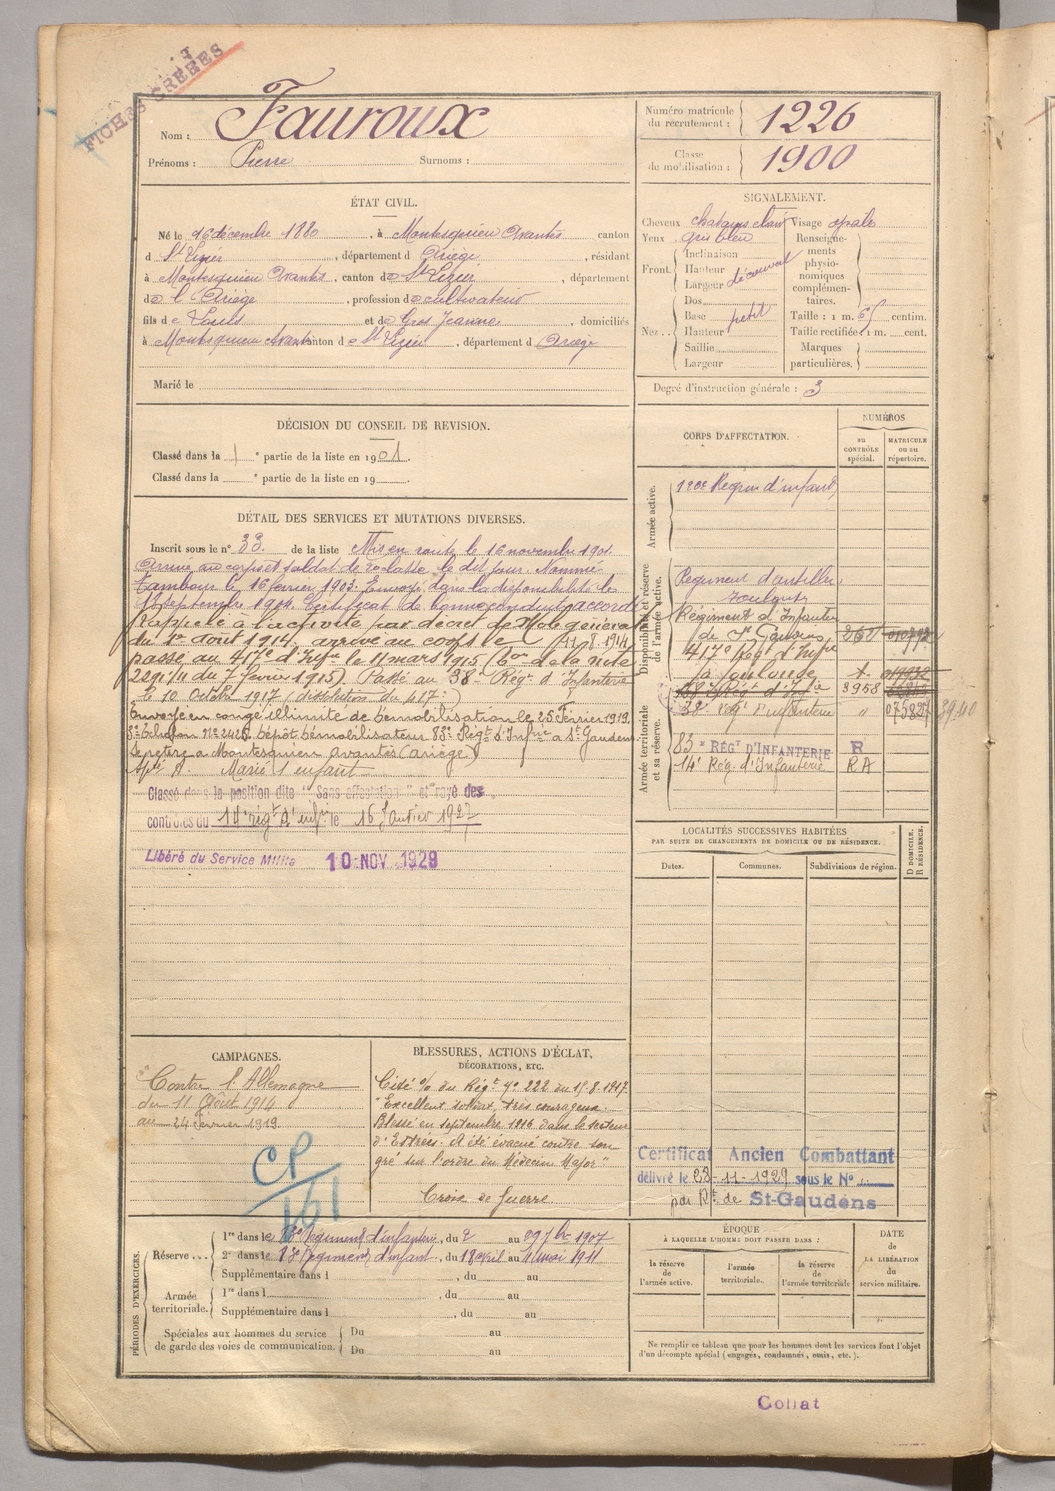 FICHES CRÉÉES
Nom : Fauroux
Prénoms : Pierre Surnoms :
Numéro matricule du recrutement : 1226
Classe de mobilisation : 1900
ÉTAT CIVIL.
Né le 16 décembre 1880, à Montesquieu Avantès canton
d St Lizier, département d Ariège, résidant
à Montesquieu Avantès, canton de St Lizier, département
de l'Ariège, profession de cultivateur
fils de Louis et de Gros Jeanne, domiciliés
à Montesquieu Avantès canton de St Lizier, département d Ariège
Marié le
SIGNALEMENT.
Cheveux châtains clair
Yeux gris bleu
Front. Inclinaison
Hauteur
Largeur découvert
Nez. Dos
Base petit
Hauteur
Saillie
Largeur
Visage ovale
Renseignements physionomiques complémentaires.
Taille : 1 m. 65 centim.
Taille rectifiée : 1 m. cent.
Marques particulières.
Degré d'instruction générale : 3
DÉCISION DU CONSEIL DE REVISION.
Classé dans la 1 e partie de la liste en 1901.
Classé dans la e partie de la liste en 19
DÉTAIL DES SERVICES ET MUTATIONS DIVERSES.
Inscrit sous le n° 33 de la liste Mis en route le 16 novembre 1901.
Arrivé au corps et soldat de 2e classe le dit jour. Nommé
tambour le 16 février 1903. Envoyé dans la disponibilité le
septembre 1904. Certificat de bonne conduite accordé
Rappelé à l'activité par décret de Mob. générale
du 1er Août 1914, arrivé au corps le 11.8.1914
passé au 417e d'Infie le 11 mars 1915 de la note
du 7 février 1915). Passé au 38e Régt d'Infanterie
le 10 Octobre 1917 (dissolution du 417e)
Envoyé en congé illimité de démobilisation le 25 Février 1919,
échelon n° 2425. Dépôt démobilisateur 83e Régt d'Infrie à St Gaudens
Se retire à Montesquieu Avantès (Ariège)
Marié 1 enfant
Classé dans la position dite "Sans affectation" et rayé des
contrôles du 14e régt d'infie le 16 Janvier 1927
Libéré du Service Milita 10 NOV. 1929
CORPS D'AFFECTATION.
NUMÉROS
au CONTRÔLE spécial.
MATRICULE ou au répertoire.
Armée active.
120e Régim d'infant
Disponibilité et réserve de l'armée active.
Régiment d'artillerie
Toulouse
Régiment d'Infanterie
de St Gaudens
417e Rég d'Infie
à Toulouse
38e Régt d'Infie 3958
38e Régt d'infanterie "
Armée territoriale et sa réserve.
83e RÉGT D'INFANTERIE R
14e Rég. d'Infanterie RA
LOCALITÉS SUCCESSIVES HABITÉES
PAR SUITE DE CHANGEMENTS DE DOMICILE OU DE RÉSIDENCE.
Dates. Communes. Subdivisions de région. D DOMICILE. R RÉSIDENCE.
CAMPAGNES.
Contre l'Allemagne
du 11 Août 1914
au 24 février 1919.
CP
161
BLESSURES, ACTIONS D'ÉCLAT,
DÉCORATIONS, ETC.
Cité % du Régt n° 222 du 15.8.1917
"Excellent soldat, très courageux.
Blessé en septembre 1916 dans le secteur
d'Estrées. A été évacué contre son
gré sur l'ordre du Médecin Major"
Croix de Guerre
Certificat Ancien Combattant
délivré le 23-11-1929 sous le N°
par Rt de St-Gaudens
PÉRIODES D'EXERCICES.
Réserve... 1re dans le 83e Régiment d'infanterie, du 2 au 29 7bre 1907
2e dans le 83e Régiment d'infant, du 18 avril au 4 mai 1911
Supplémentaire dans l , du au
Armée territoriale. 1re dans l , du au
Supplémentaire dans l , du au
Spéciales aux hommes du service de garde des voies de communication. Du au
Du au
ÉPOQUE
À LAQUELLE L'HOMME DOIT PASSER DANS :
la réserve de l'armée active.
l'armée territoriale.
la réserve de l'armée territoriale
DATE de LA LIBÉRATION du service militaire.
Ne remplir ce tableau que pour les hommes dont les services font l'objet
d'un décompte spécial (engagés, condamnés, omis, etc.).
Collat